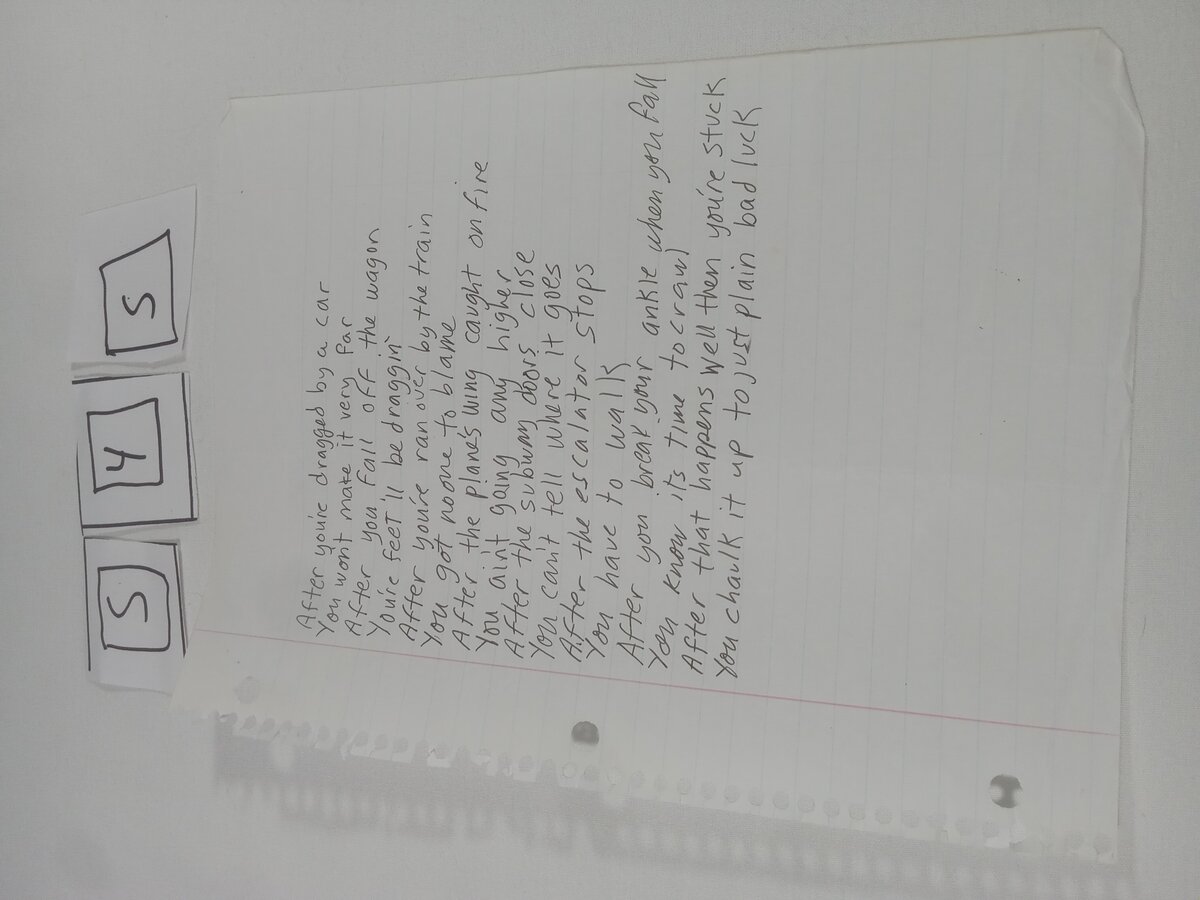 5 4 5
After you're dragged by a car
You wont make it very far
After you fall off the wagon
You're feet'll be draggin'
After you're ran over by the train
You got no one to blame
After the plane's wing caught on fire
You ain't gaing any higher
After the subway doors close
You can't tell where it goes
After the escalator stops
You have to walk
After you break your ankle when you fall
You know it's time to crawl
After that happens well then you're stuck
You chaulk it up to just plain bad luck